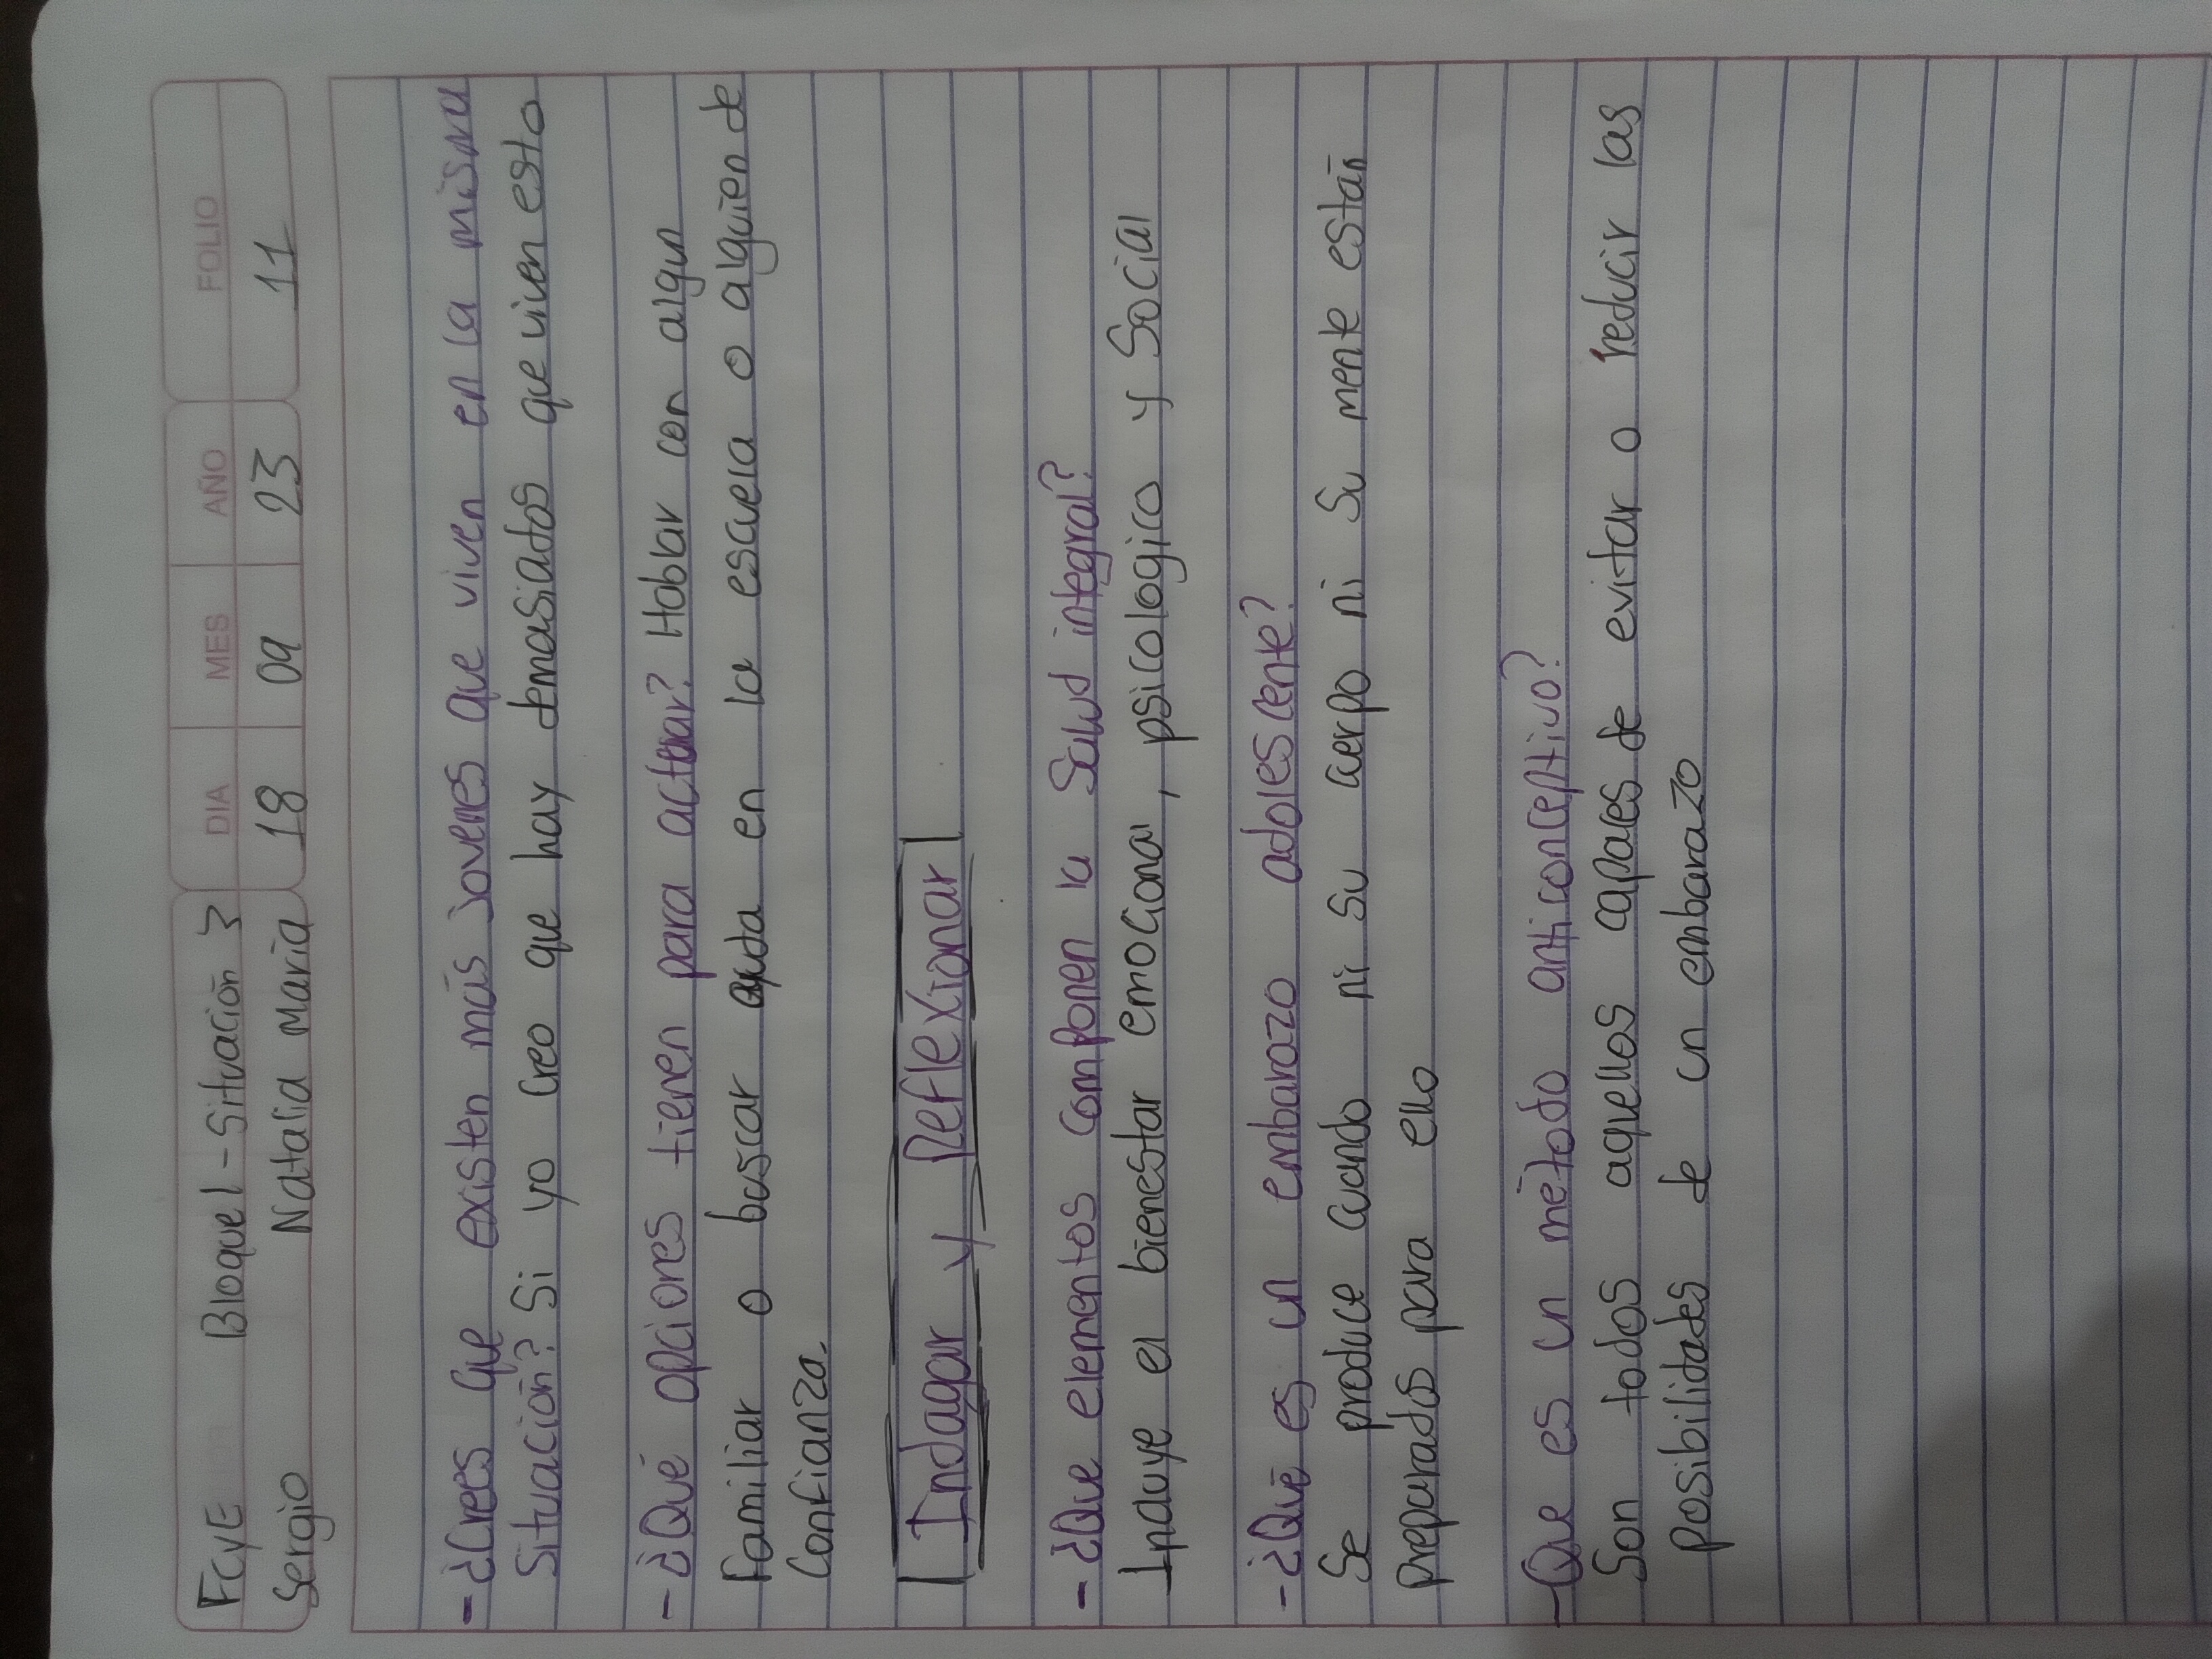 FCyE Bloque 1 - Situación 3
Sergio Natalia María
DIA MES AÑO FOLIO
18 09 23 11
- ¿Crees que existen más jovenes que viven en la misma
situación? Si yo creo que hay demasiados que viven esto
- ¿Qué opciones tienen para actuar? Hablar con algun
familiar o buscar ayuda en la escuela o alguien de
confianza.
Indagar y Reflexionar
- ¿Que elementos componen la Salud integral?
Incluye el bienestar emocional, psicologico y Social
- ¿Qué es un embarazo adolescente?
Se produce cuando ni su cuerpo ni su mente están
preparados para ello
- Que es un método anticonceptivo?
Son todos aquellos capaces de evitar o reducir las
posibilidades de un embarazo